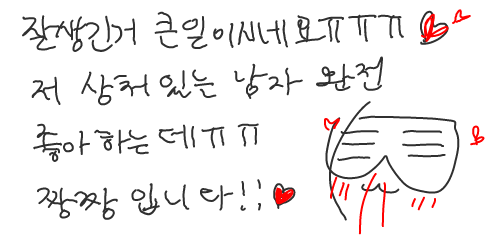 잘생긴거 큰일이시네요ㅠㅠㅠ
저 상처 있는 남자 완전
좋아하는데ㅠㅠ
짱짱입니다!!